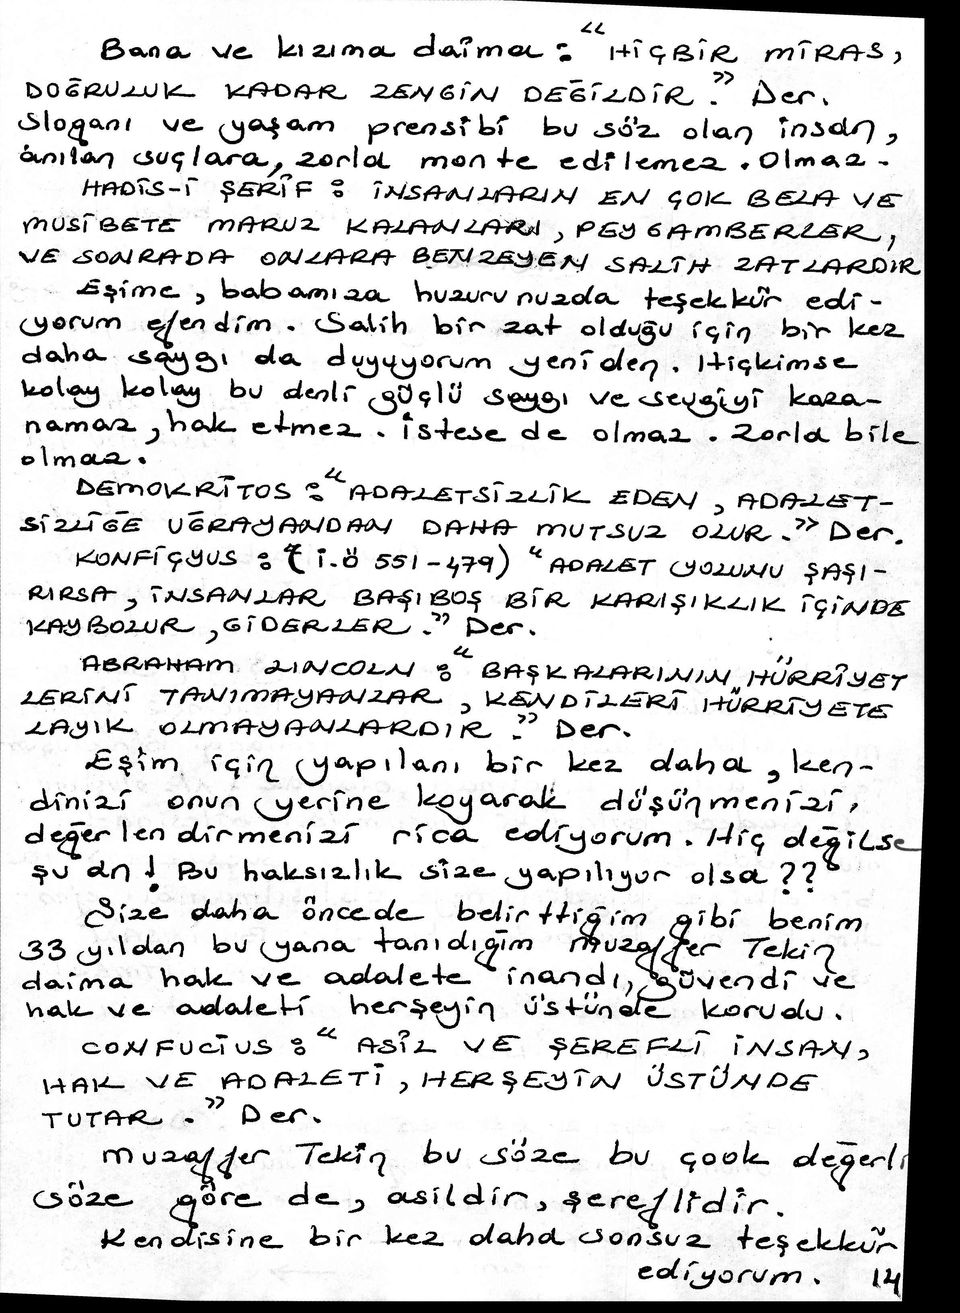 Bana ve kızıma daima : "HİÇBİR MİRAS,
DOĞRULUK KADAR ZENGİN DEĞİLDİR." Der.
Sloganı ve yaşam prensibi bu söz olan insan,
anılan suçlara, zorla monte edilemez. Olmaz.
HADİS-İ ŞERİF : İNSANLARIN EN ÇOK BELA VE
MUSİBETE MARUZ KALANLARI, PEYGAMBERLER,
VE SONRADA ONLARA BENZEYEN SALİH ZATLARDIR
Eşime, babamıza huzurunuzda teşekkür edi-
yorum efendim. Salih bir zat olduğu için bir kez
daha saygı da duyuyorum yeniden. Hiçkimse
kolay kolay bu denli güçlü saygı ve sevgiyi kaza-
namaz, hak etmez. İstese de olmaz. Zorla bile
olmaz.
DEMOKRİTOS : "ADALETSİZLİK EDEN, ADALET-
SİZLİĞE UĞRAYANDAN DAHA MUTSUZ OLUR." Der.
KONFİÇYUS : (İ.Ö 551-479) "ADALET YOLUNU ŞAŞI-
RIRSA, İNSANLAR BAŞIBOŞ BİR KARIŞIKLIK İÇİNDE
KAYBOLUR, GİDERLER." Der.
ABRAHAM LINCOLN : "BAŞKALARININ HÜRRİYET
LERİNİ TANIMAYANLAR, KENDİLERİ HÜRRİYETE
LAYIK OLMAYANLARDIR." Der.
Eşim için yapılanı bir kez daha, ken-
dinizi onun yerine koyarak düşünmenizi,
değerlendirmenizi rica ediyorum. Hiç değilse
şu an! Bu haksızlık size yapılıyor olsa??
Size daha öncede belirttiğim gibi benim
33 yıldan bu yana tanıdığım Muzaffer Tekin
daima hak ve adalete inandı, güvendi ve
hak ve adaleti herşeyin üstünde korudu.
CONFUCİUS : "ASİL VE ŞEREFLİ İNSAN,
HAK VE ADALETİ, HERŞEYİN ÜSTÜNDE
TUTAR." Der.
Muzaffer Tekin bu söze bu çook değerli
söze göre de, asildir, şereflidir.
Kendisine bir kez daha sonsuz teşekkür
ediyorum. 14